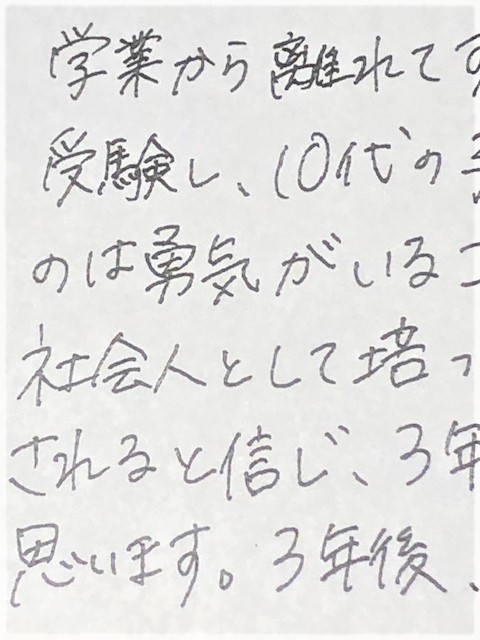 学業から離れてず
受験し、10代の
のは勇気がいるこ
社会人として培っ
されると信じ、3年
思います。3年後、